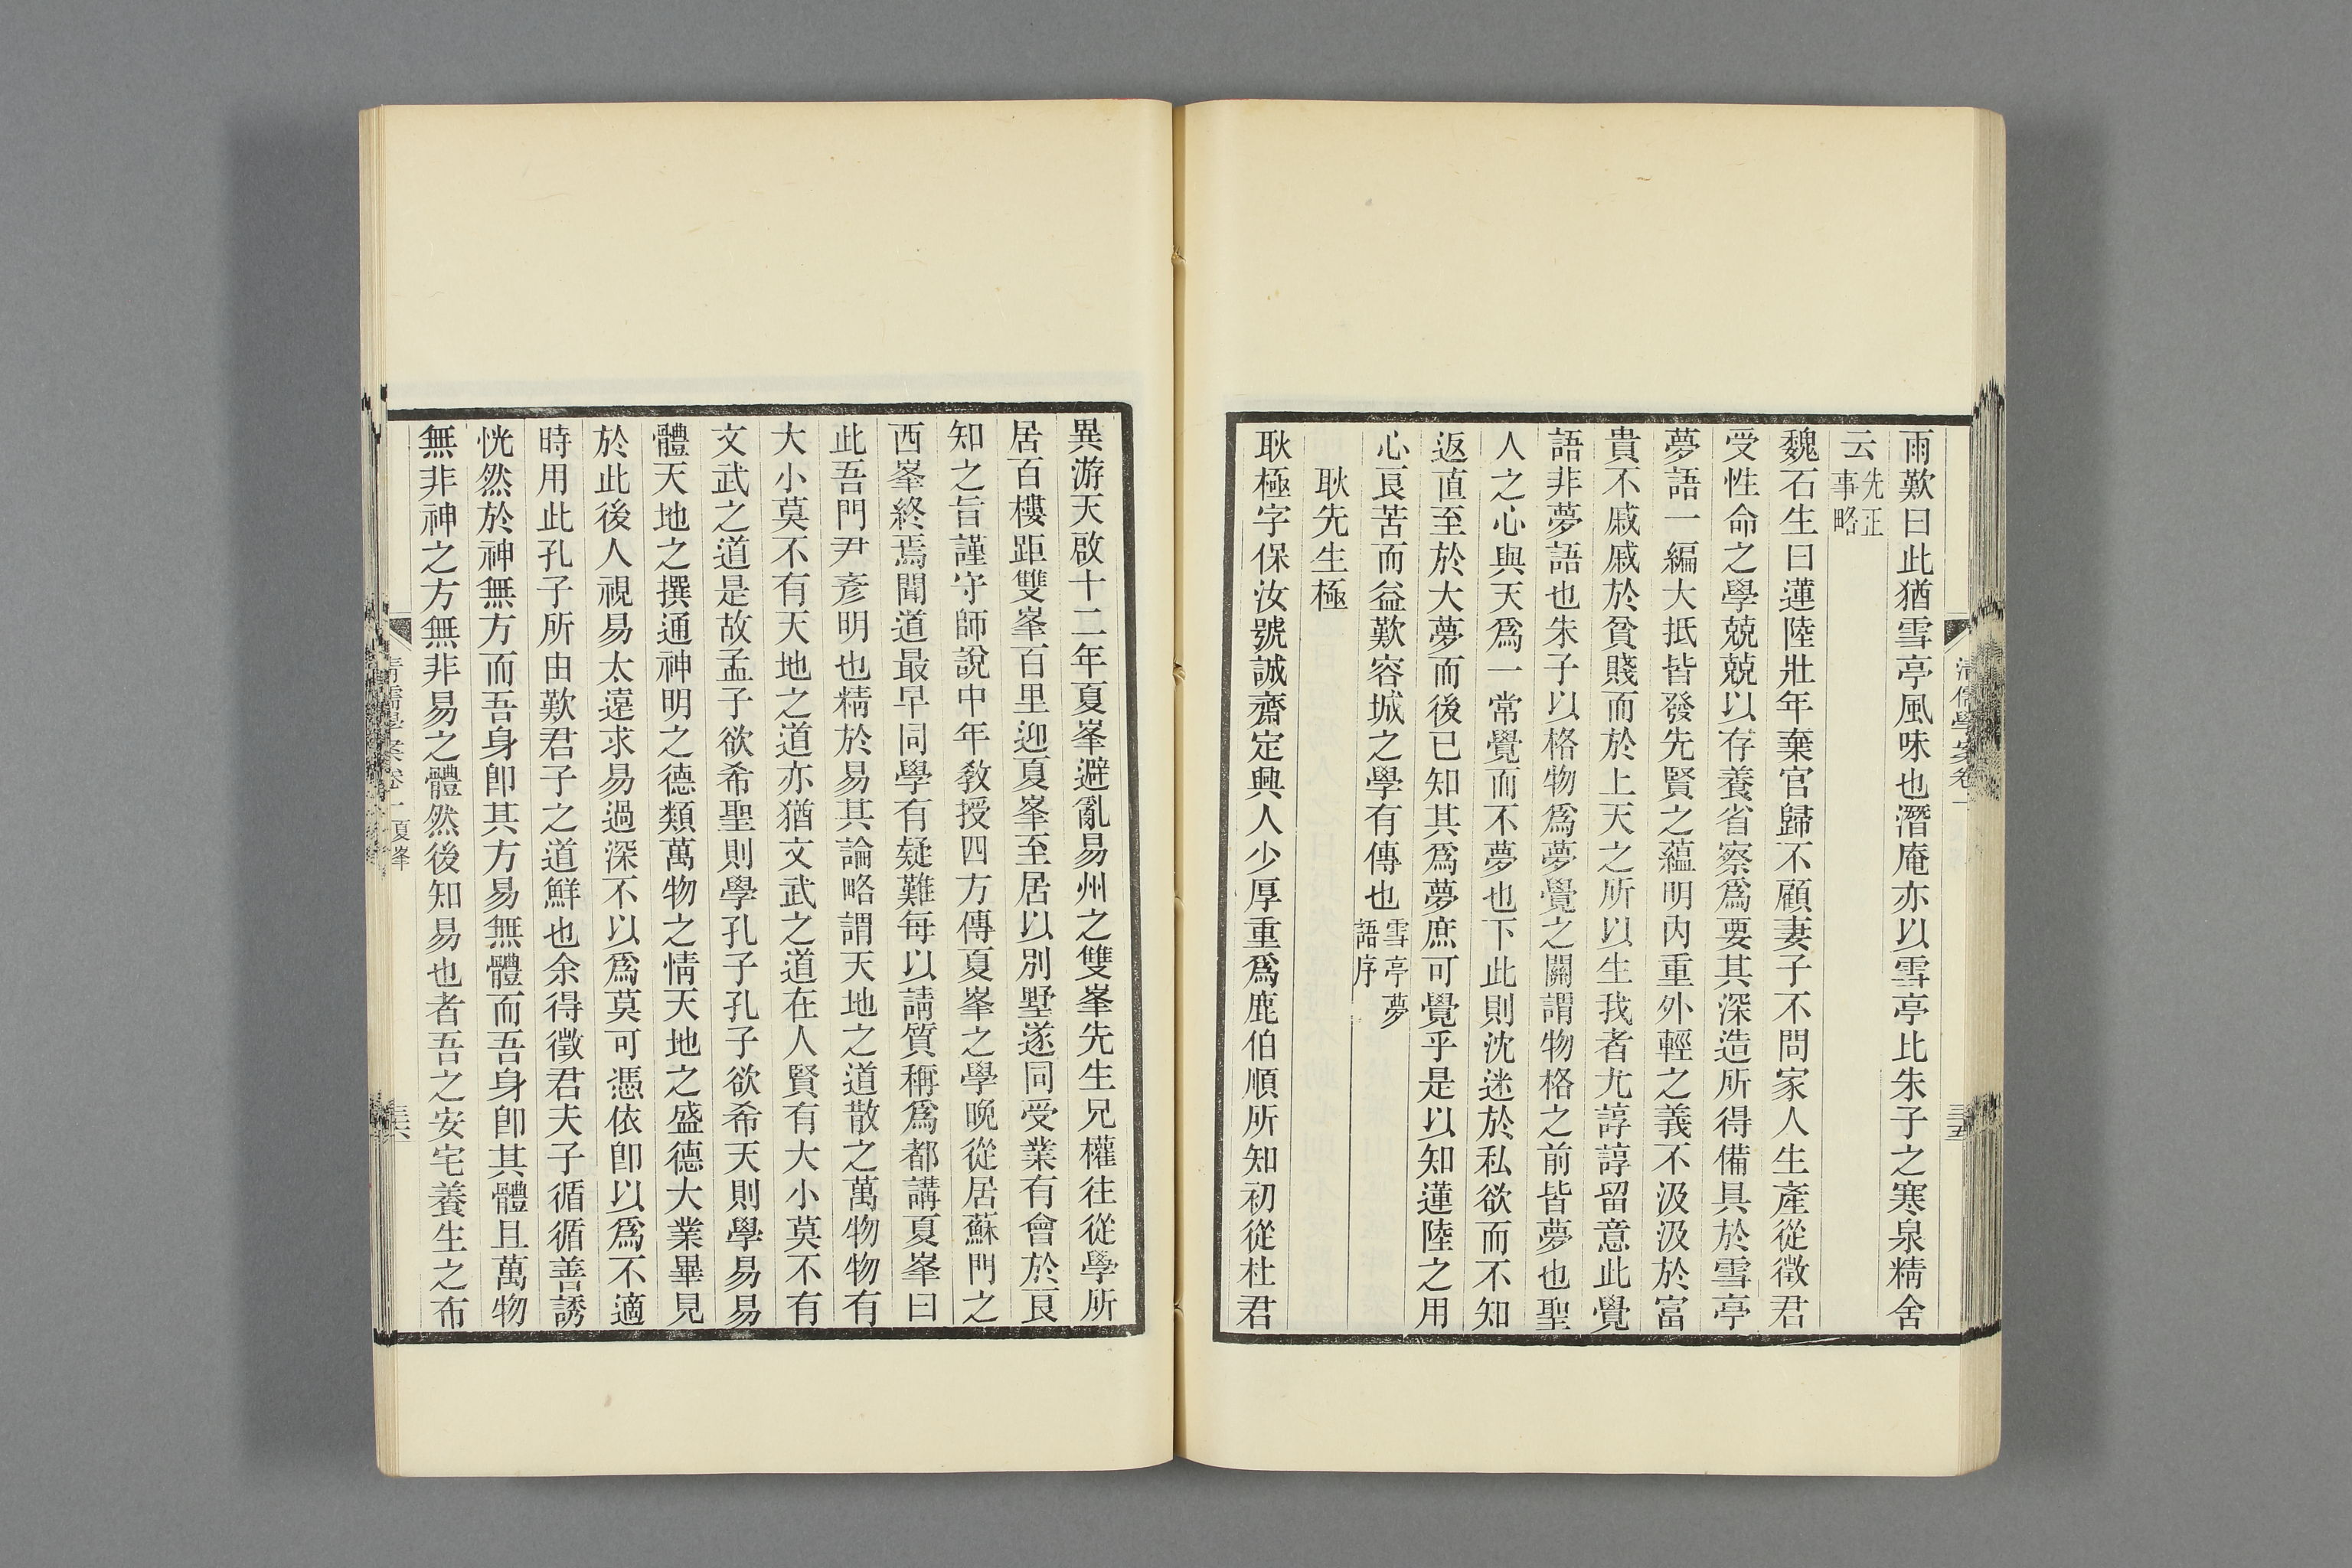 雨歎曰此猶雪亭風味也潛庵亦以雪亭比朱子之寒泉精舍
云先正事略
魏石生曰蓮陸壯年棄官歸不顧妻子不問家人生產從徵君
受性命之學兢兢以存養省察爲要其深造所得備具於雪亭
夢語一編大抵皆發先賢之蘊明內重外輕之義不汲汲於富
貴不戚戚於貧賤而於上天之所以生我者尤諄諄留意此覺
語非夢語也朱子以格物爲夢覺之關謂物格之前皆夢也聖
人之心與天爲一常覺而不夢也下此則沈迷於私欲而不知
返直至於大夢而後已知其爲夢庶可覺乎是以知蓮陸之用
心良苦而益歎容城之學有傳也雪亭夢語序
耿先生極
耿極字保汝號誠齋定興人少厚重爲鹿伯順所知初從杜君
異游天啟十二年夏峯避亂易州之雙峯先生兄權往從學所
居百樓距雙峯百里迎夏峯至居以別墅遂同受業有會於良
知之旨謹守師說中年教授四方傳夏峯之學晚從居蘇門之
西峯終焉聞道最早同學有疑難每以請質稱爲都講夏峯曰
此吾門尹彥明也精於易其論略謂天地之道散之萬物物有
大小莫不有天地之道亦猶文武之道在人賢有大小莫不有
文武之道是故孟子欲希聖則學孔子孔子欲希天則學易易
體天地之撰通神明之德類萬物之情天地之盛德大業畢見
於此後人視易太遠求易過深不以爲莫可憑依卽以爲不適
時用此孔子所由歎君子之道鮮也余得徵君夫子循循善誘
恍然於神無方而吾身卽其方易無體而吾身卽其體且萬物
無非神之方無非易之體然後知易也者吾之安宅養生之布
清儒學案卷一
三十五
清儒學案卷一 夏峯
三十六